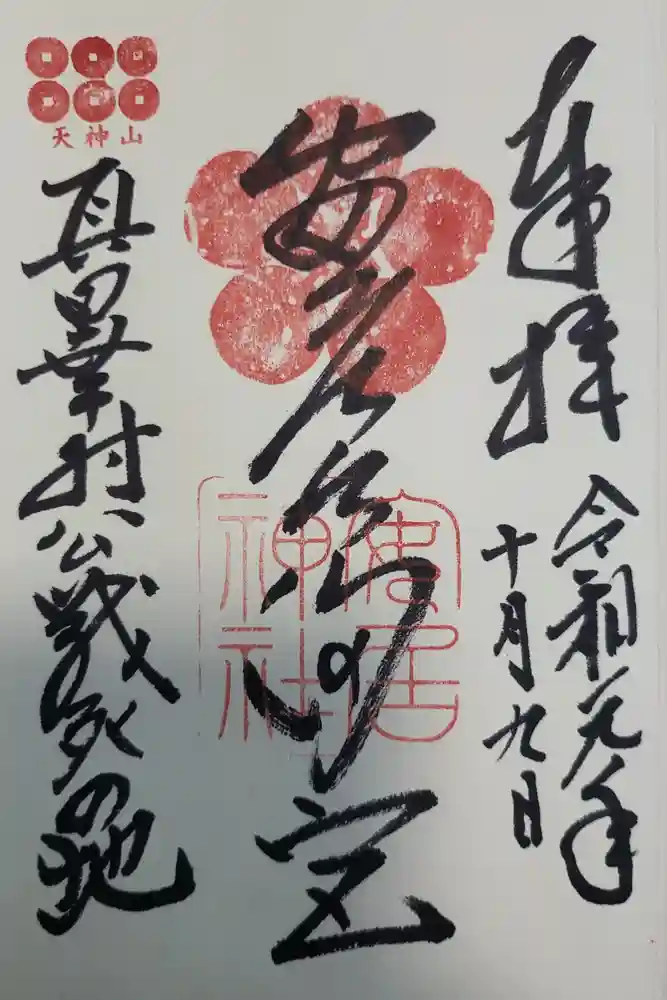 奉拝
令和元年
十月九日
安居
の宮
安居
神社
天神山
真田幸村公戦死の地